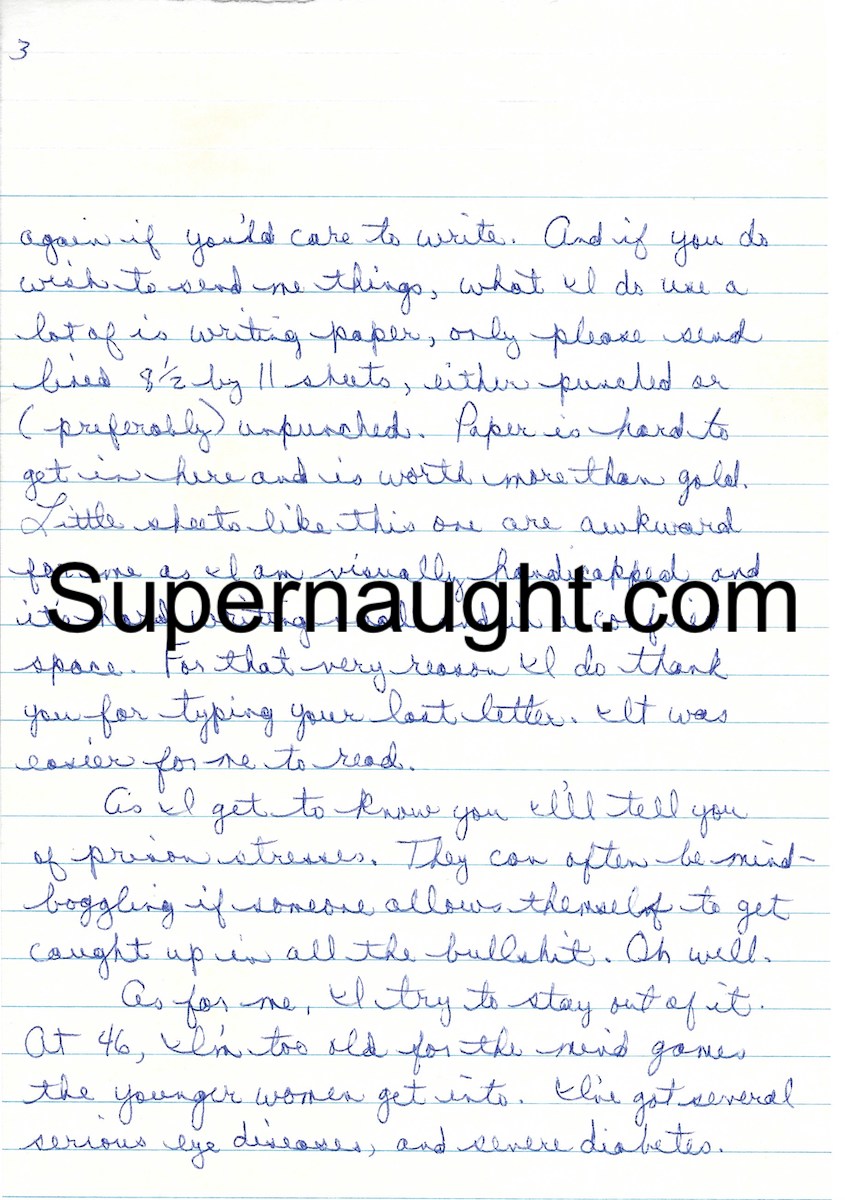 3
again if you'ld care to write. And if you do
wish to send me things, what I do use a
lot of is writing paper, only please send
lined 8 1/2 by 11 sheets, either punched or
(preferably) unpunched. Paper is hard to
get in here and is worth more than gold.
Little sheets like this one are awkward
for me as I am visually handicapped and
Supernaught.com
it's hard writing small and in a confined
space. For that very reason I do thank
you for typing your last letter. It was
easier for me to read.
As I get to know you I'll tell you
of prison stresses. They can often be mind-
boggling if someone allows themself to get
caught up in all the bullshit. Oh well.
As for me, I try to stay out of it.
At 46, I'm too old for the mind games
the younger women get into. I've got several
serious eye diseases, and severe diabetes.